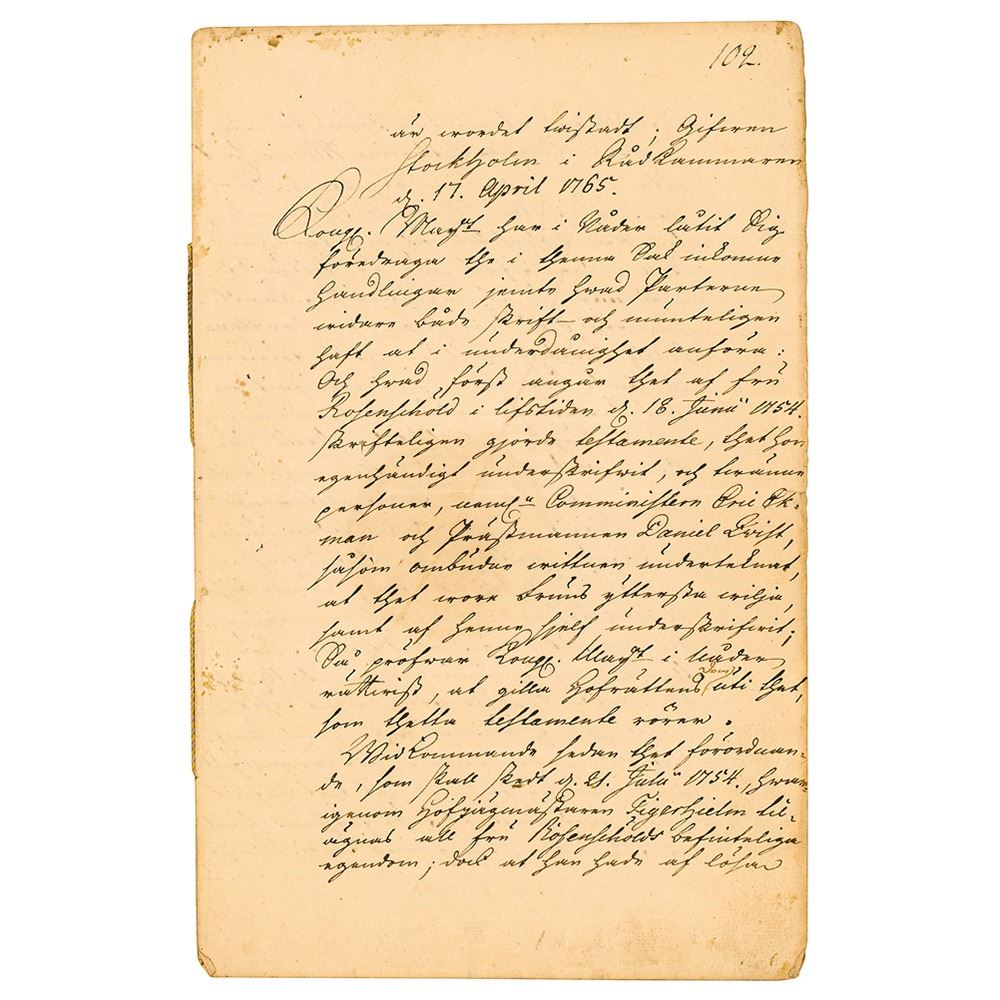 102.
är wordet twistadt; Gifwen
Stockholm i RådCammaren
d. 17. April 1765.
Kongl. Mayst. har i Nåder låtit Sig
föredraga the i thenna Sak inkomne
Handlingar jemte hwad Parterne
widare både skrift- och munteligen
haft at i underdånighet anföra:
Och hwad först angår thet af fru
Rosenschöld i lifstiden d. 18. Junii 1754.
skrifteligen gjorde testamente, thet hon
egenhändigt underskrifwit, och twänne
personer, neml. Comministern Eric Ek-
man och Prästmannen Daniel Qwist,
såsom ombudne wittnen undertecknat,
at thet wore Fruns yttersta wilja,
samt af henne sjelf underskrifwit;
Så pröfwar Kongl. Mayst. i Nåder
rättwist, at gilla Hofrättens Dom uti thet,
som thetta testamente rörer.
Widkommande sedan thet förordnan-
de, som skall skedt d. 21. Julii 1754., hwar-
igenom Hofjägmästaren Tigerhielm til-
ägnas all fru Rosenschölds befinteliga
egendom; dock at han hade af lösa